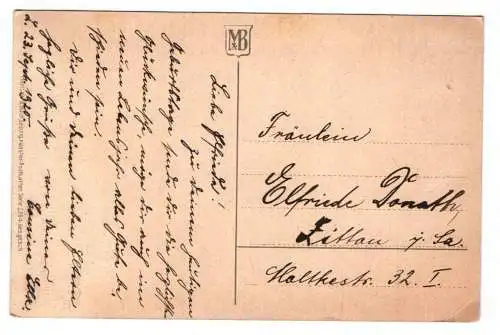 MB
Liebe Elfriede!
Zu Deinem heutigen
Geburtstage sende dir die herzlichsten
Glückwünsche, möge dir auch im
neuen Lebensjahr alles Gute be-
schieden sein.
Dir und deinen lieben Eltern
herzliche Grüße von deiner
Cousine Ella.
d. 23. Sept. 1925
Fräulein
Elfriede Donath
Zittau i. Sa.
Moltkestr. 32. I.